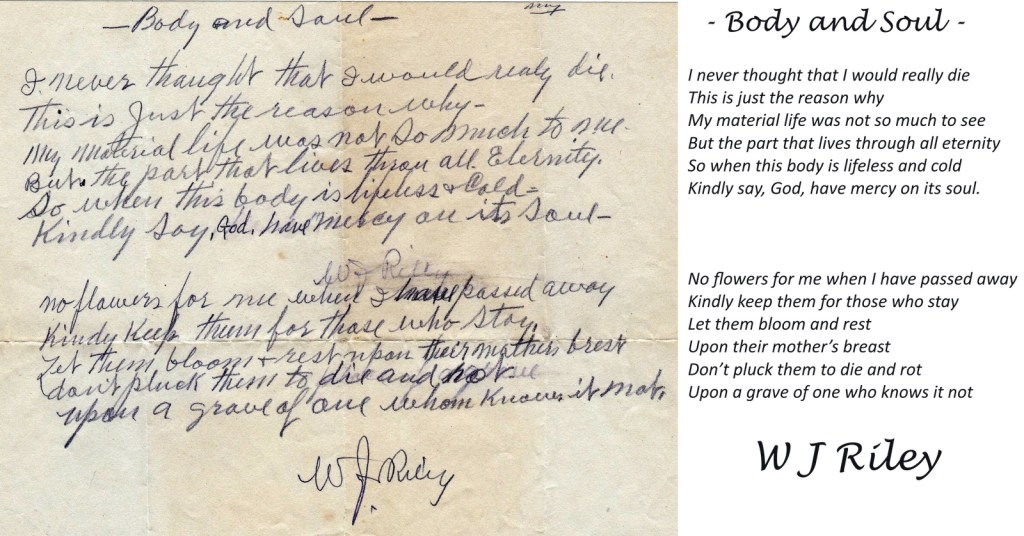 - Body and Soul -
I never thought that I would realy die.
This is Just the reason why-
My material life was not so much to me.
But. the part that lives thru all Eternity.
So when this body is lifeless & Cold-
Kindly Say, God. have mercy on its Soul-
W J Riley
no flowers for me when I have passed away
Kindy Keep them for those who stay.
Let them bloom & rest upon their mothers brest
don't pluck them to die and rot
upon a grave of one whom Knows it not.
W J. Riley
- Body and Soul -
I never thought that I would really die
This is just the reason why
My material life was not so much to see
But the part that lives through all eternity
So when this body is lifeless and cold
Kindly say, God, have mercy on its soul.
No flowers for me when I have passed away
Kindly keep them for those who stay
Let them bloom and rest
Upon their mother’s breast
Don’t pluck them to die and rot
Upon a grave of one who knows it not
W J Riley